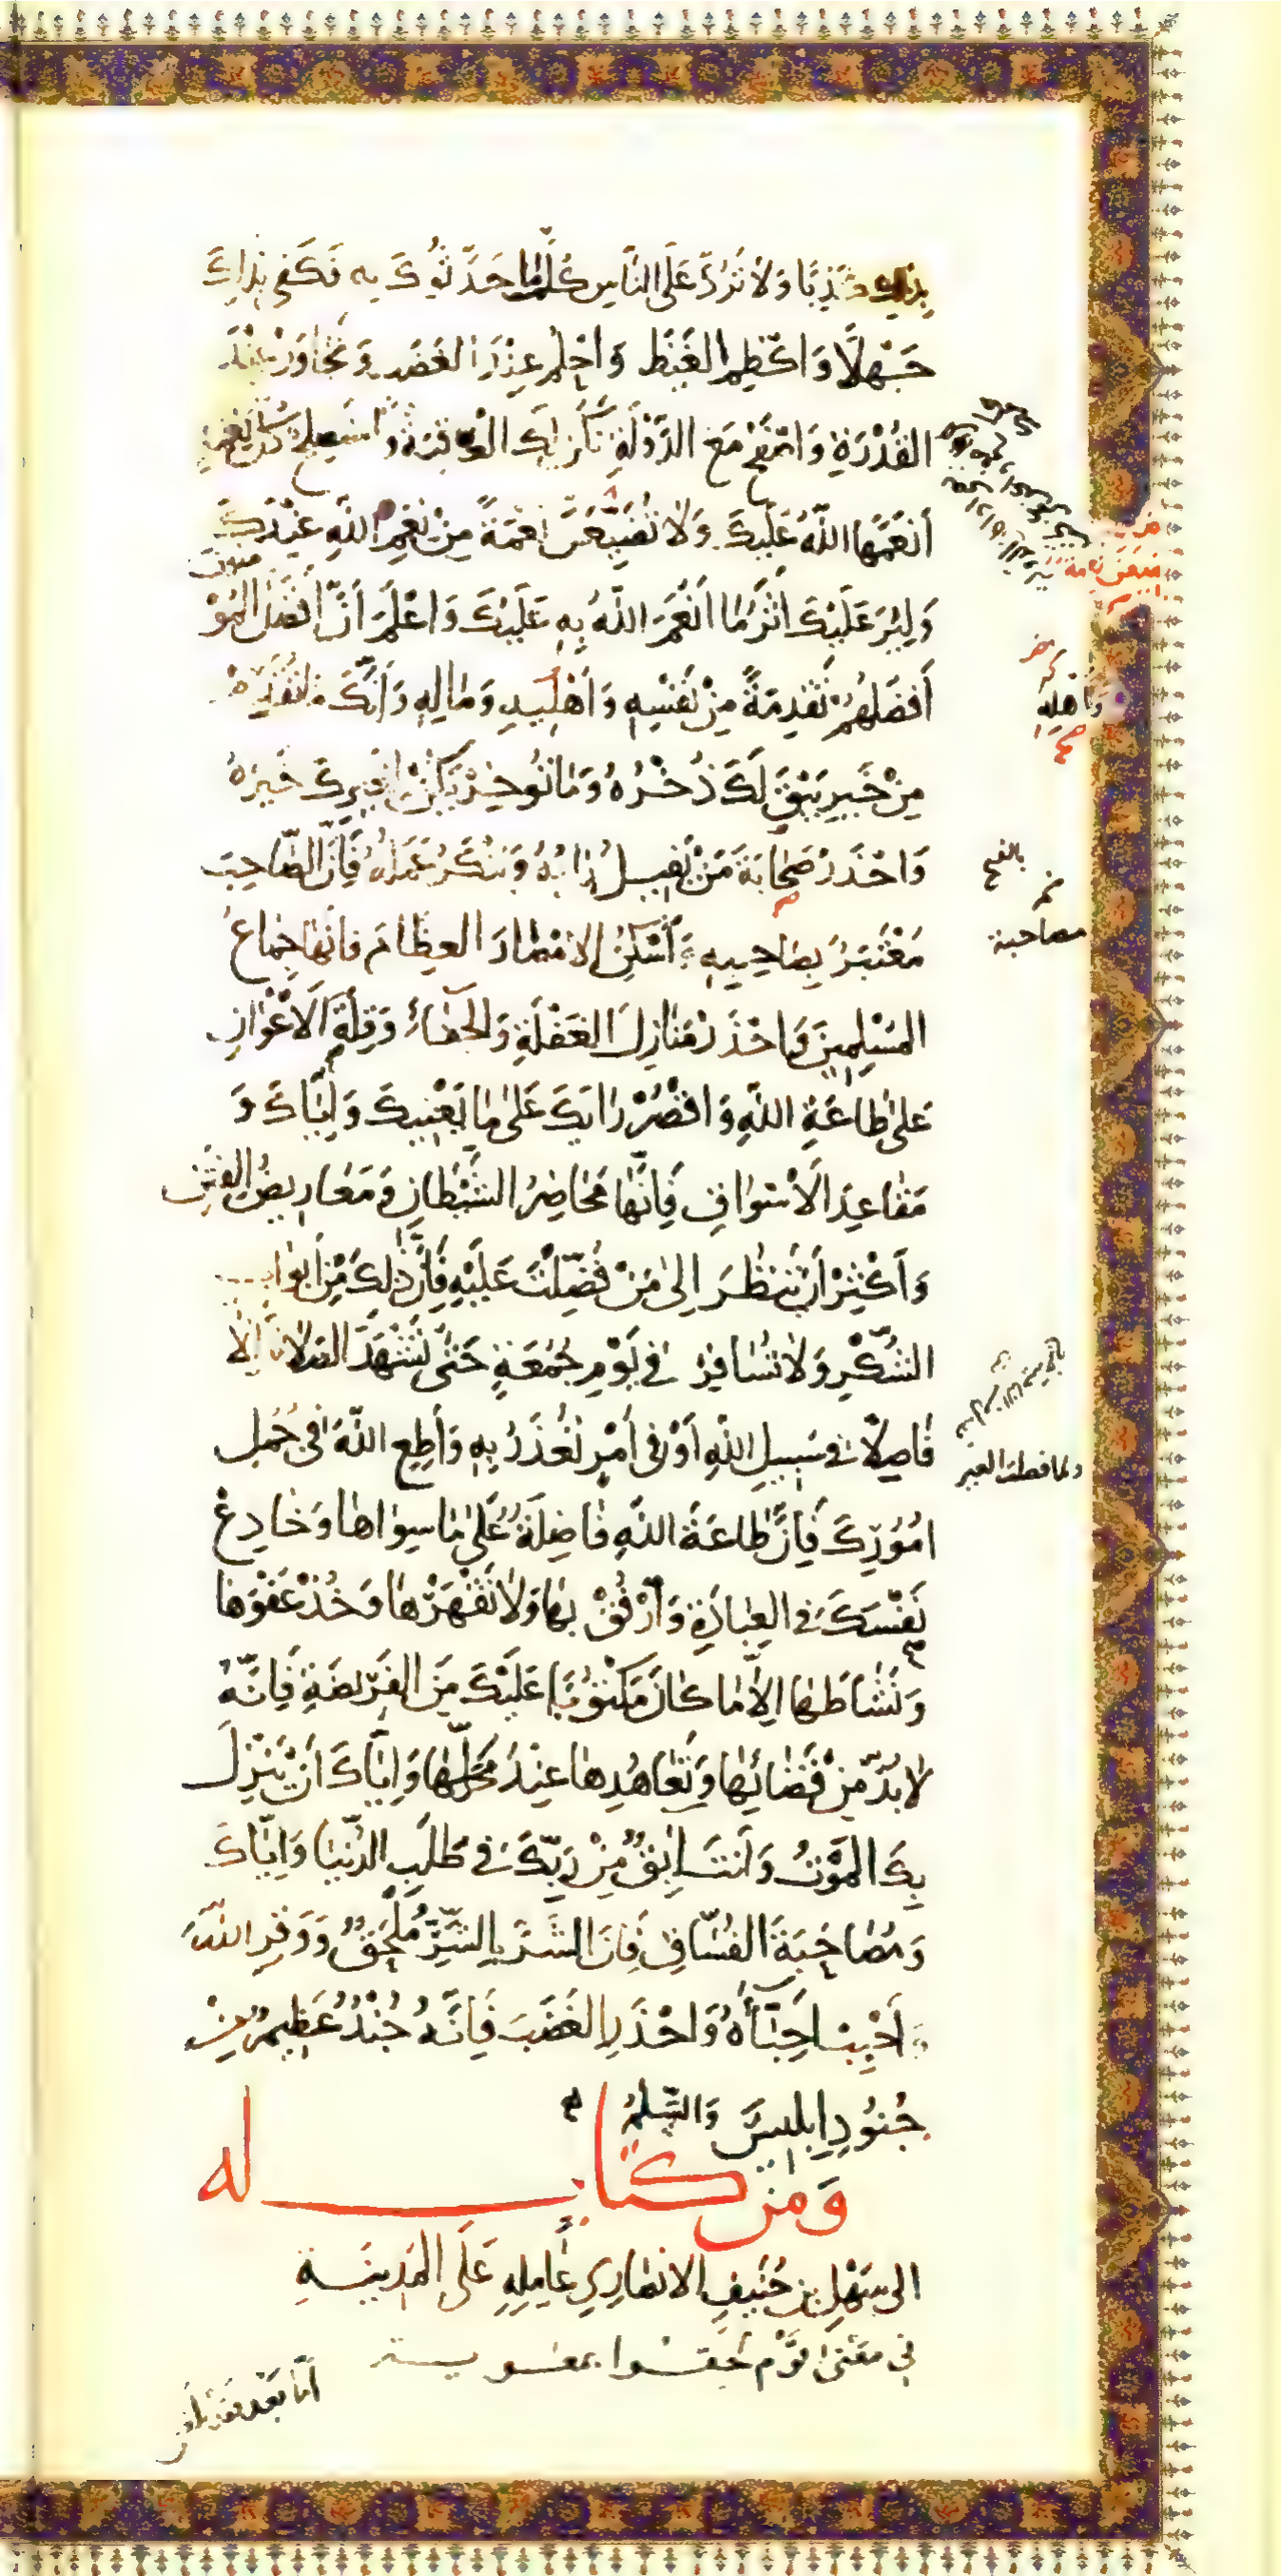 بِذٰلِكَ كَذِبًا وَلَا تَرُدَّ عَلَى النَّاسِ كُلَّمَا حَدَّثُوكَ بِهِ فَكَفَى بِذٰلِكَ
جَهْلًا وَاكْظِمِ الْغَيْظَ وَاحْلُمْ عِنْدَ الْغَضَبِ وَتَجَاوَزْ عِنْدَ
الْقُدْرَةِ وَاصْفَحْ مَعَ الدَّوْلَةِ تَكُنْ لَكَ الْعَاقِبَةُ وَاسْتَصْلِحْ كُلَّ نِعْمَةٍ
أَنْعَمَهَا اللّٰهُ عَلَيْكَ وَلَا تُضَيِّعَنَّ نِعْمَةً مِنْ نِعَمِ اللّٰهِ عِنْدَكَ
وَلْيُرَ عَلَيْكَ أَثَرُ مَا أَنْعَمَ اللّٰهُ بِهِ عَلَيْكَ وَاعْلَمْ أَنَّ أَفْضَلَ الْمُؤْمِنِينَ
أَفْضَلُهُمْ تَقْدِمَةً مِنْ نَفْسِهِ وَأَهْلِهِ وَمَالِهِ وَإِنَّكَ مَا تُقَدِّمْ
مِنْ خَيْرٍ يَبْقَ لَكَ ذُخْرُهُ وَمَا تُؤَخِّرْ يَكُنْ لِغَيْرِكَ خَيْرُهُ
وَاحْذَرْ صَحَابَةَ مَنْ يَفِيلُ رَأْيُهُ وَيُنْكَرُ عَمَلُهُ فَإِنَّ الصَّاحِبَ
مُعْتَبَرٌ بِصَاحِبِهِ وَاسْكُنِ الْأَمْصَارَ الْعِظَامَ فَإِنَّهَا جِمَاعُ
الْمُسْلِمِينَ وَاحْذَرْ مَنَازِلَ الْغَفْلَةِ وَالْجَفَاءِ وَقِلَّةَ الْأَعْوَانِ
عَلَى طَاعَةِ اللّٰهِ وَاقْصُرْ رَأْيَكَ عَلَى مَا يَعْنِيكَ وَإِيَّاكَ وَ
مَقَاعِدَ الْأَسْوَاقِ فَإِنَّهَا مَحَاضِرُ الشَّيْطَانِ وَمَعَارِيضُ الْفِتَنِ
وَأَكْثِرْ أَنْ تَنْظُرَ إِلَى مَنْ فُضِّلْتَ عَلَيْهِ فَإِنَّ ذٰلِكَ مِنْ أَبْوَابِ
الشُّكْرِ وَلَا تُسَافِرْ فِي يَوْمِ جُمُعَةٍ حَتَّى تَشْهَدَ الصَّلَاةَ إِلَّا
فَاصِلًا فِي سَبِيلِ اللّٰهِ أَوْ فِي أَمْرٍ تُعْذَرُ بِهِ وَأَطِعِ اللّٰهَ فِي جُمَلِ
أُمُورِكَ فَإِنَّ طَاعَةَ اللّٰهِ فَاضِلَةٌ عَلَى مَا سِوَاهَا وَخَادِعْ
نَفْسَكَ فِي الْعِبَادَةِ وَارْفُقْ بِهَا وَلَا تَقْهَرْهَا وَخُذْ عَفْوَهَا
وَنَشَاطَهَا إِلَّا مَا كَانَ مَكْتُوبًا عَلَيْكَ مِنَ الْفَرِيضَةِ فَإِنَّهُ
لَا بُدَّ مِنْ قَضَائِهَا وَتَعَاهُدِهَا عِنْدَ مَحَلِّهَا وَإِيَّاكَ أَنْ يَنْزِلَ
بِكَ الْمَوْتُ وَأَنْتَ آبِقٌ مِنْ رَبِّكَ فِي طَلَبِ الدُّنْيَا وَإِيَّاكَ
وَمُصَاحَبَةَ الْفُسَّاقِ فَإِنَّ الشَّرَّ بِالشَّرِّ مُلْحَقٌ وَوَقِّرِ اللّٰهَ
وَأَحْبِبْ أَحِبَّاءَهُ وَاحْذَرِ الْغَضَبَ فَإِنَّهُ جُنْدٌ عَظِيمٌ مِنْ
جُنُودِ إِبْلِيسَ وَالسَّلَامُ
وَمِنْ كِتَابٍ لَهُ
إِلَى سَهْلِ بْنِ حُنَيْفٍ الْأَنْصَارِيِّ عَامِلِهِ عَلَى الْمَدِينَةِ
فِي مَعْنَى قَوْمٍ لَحِقُوا بِمُعٰوِيَةَ
أَمَّا بَعْدُ فَقَدْ بَلَغَنِي
وَأَهْلِهِ
صح
بالفتح
مصاحبة